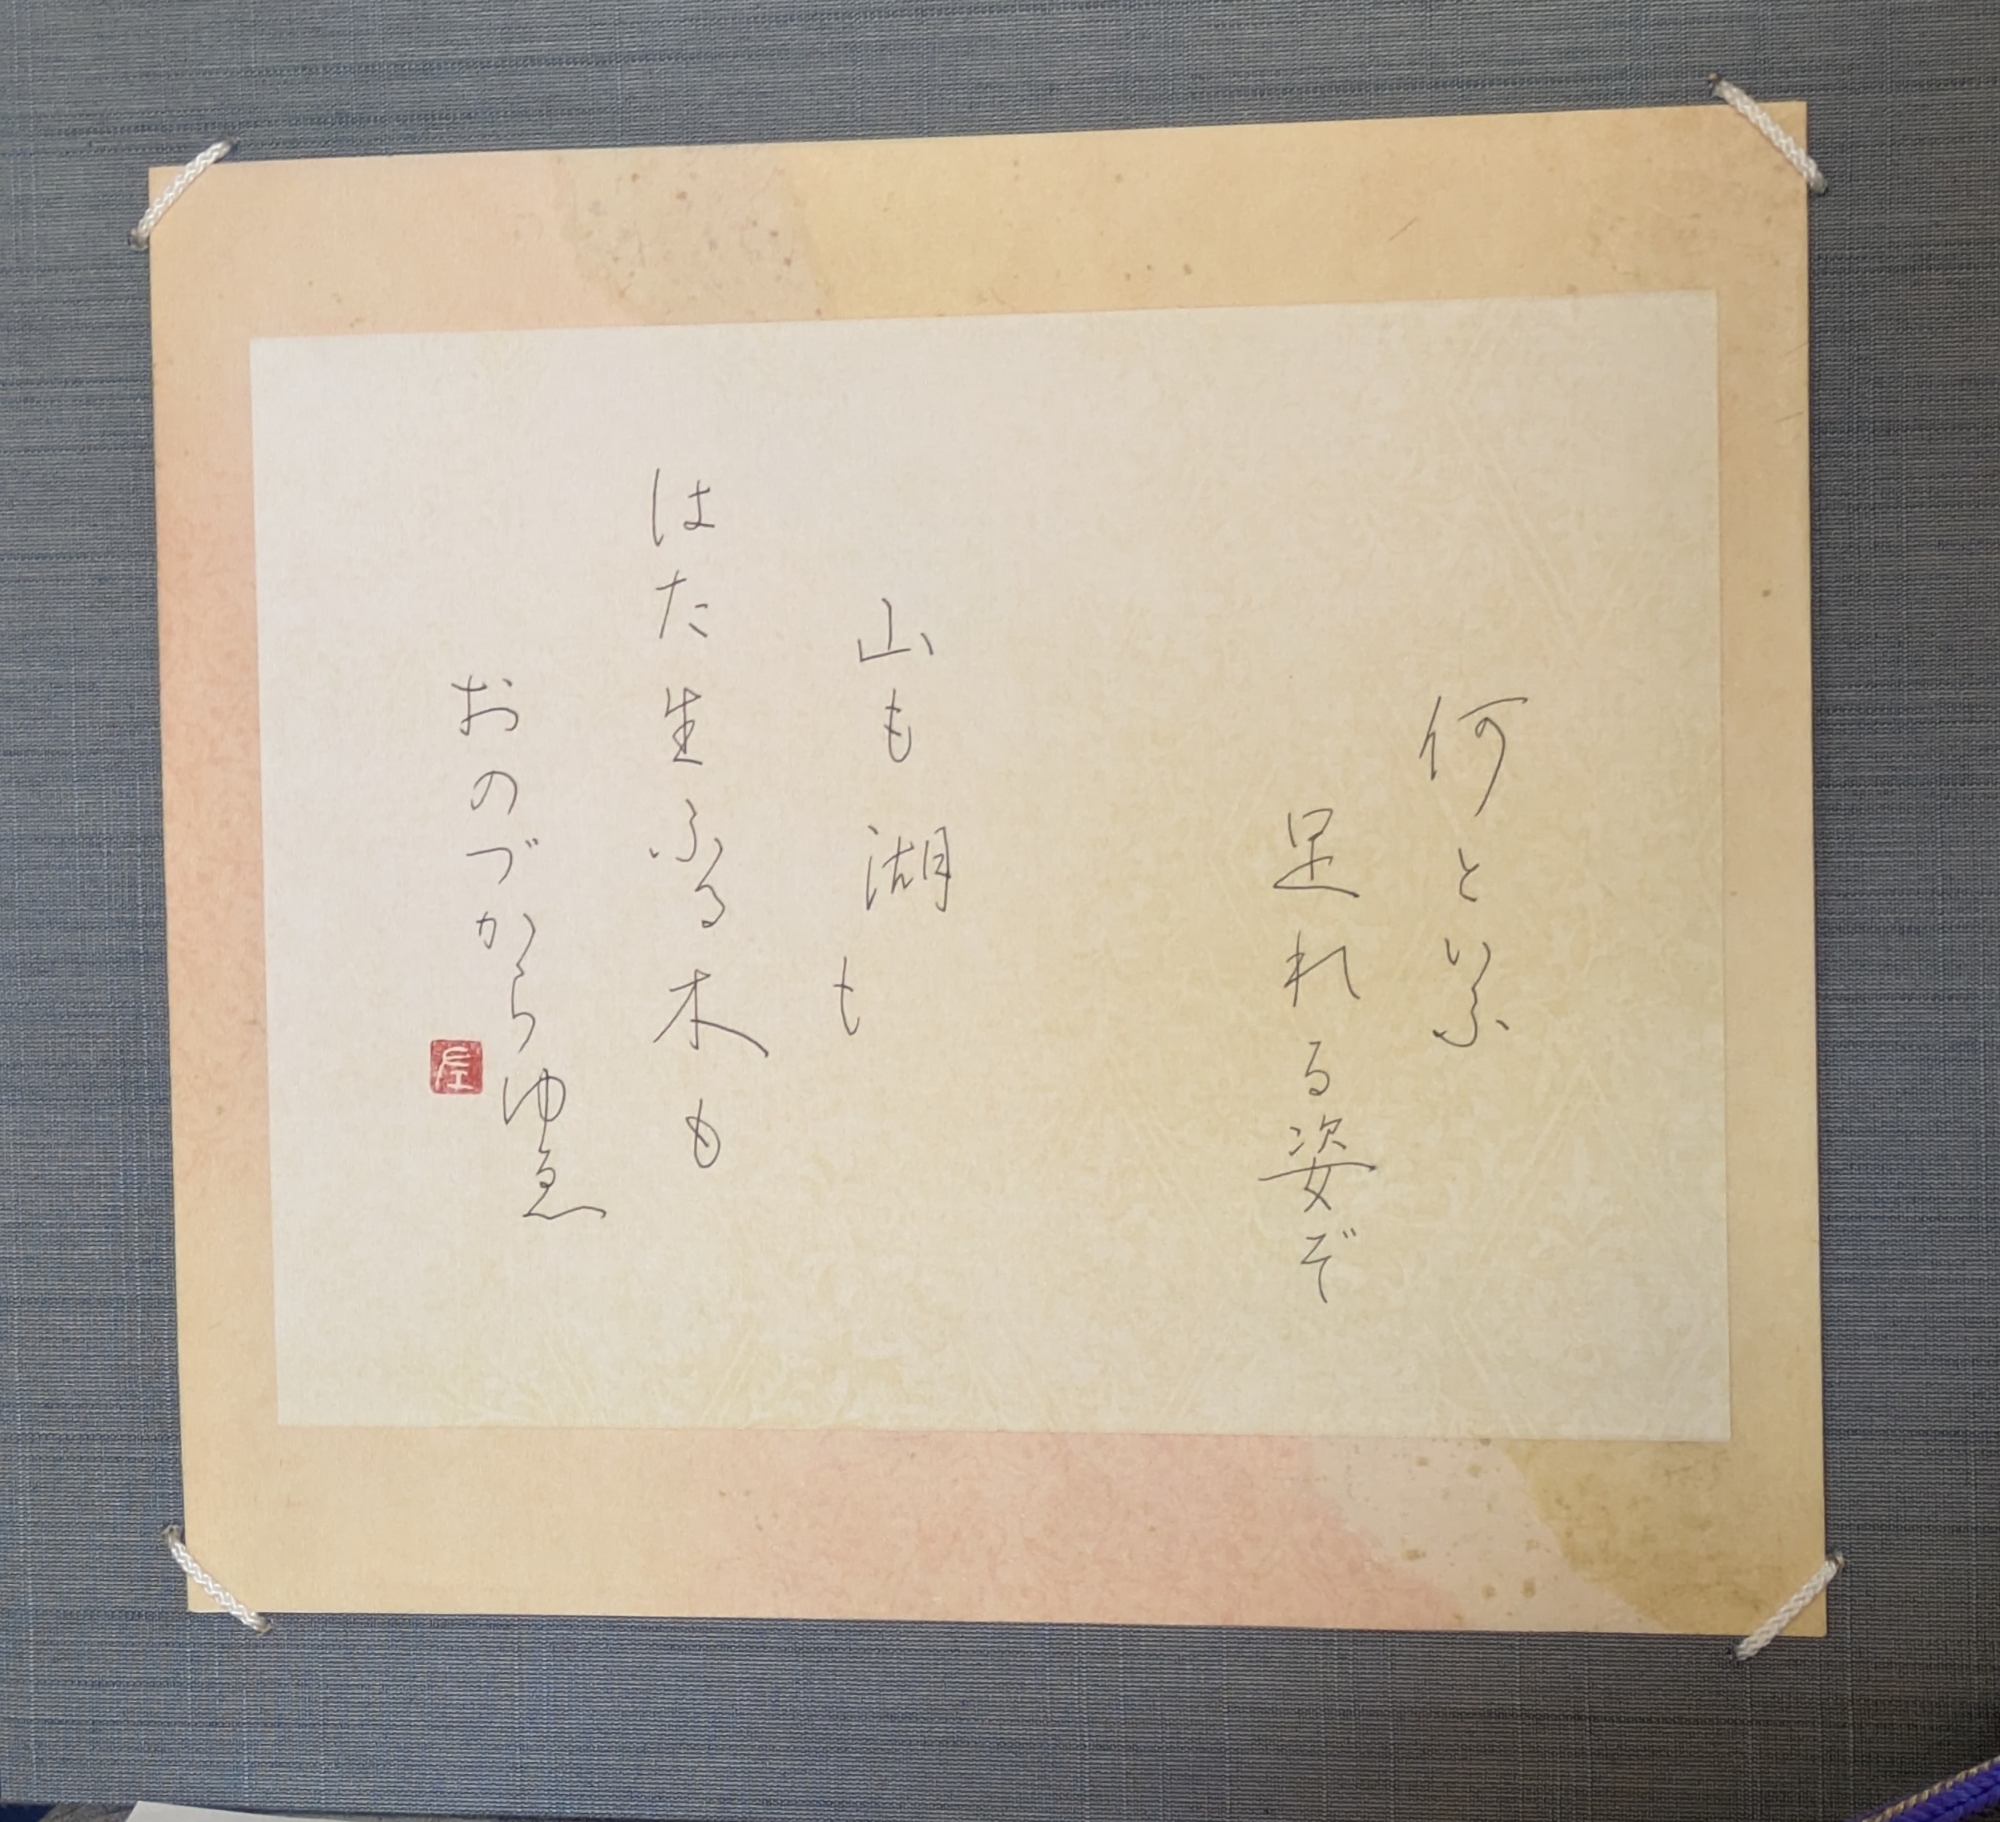 何といふ
足れる姿ぞ
山も湖も
はた生ふる木も
おのづからゆゑ